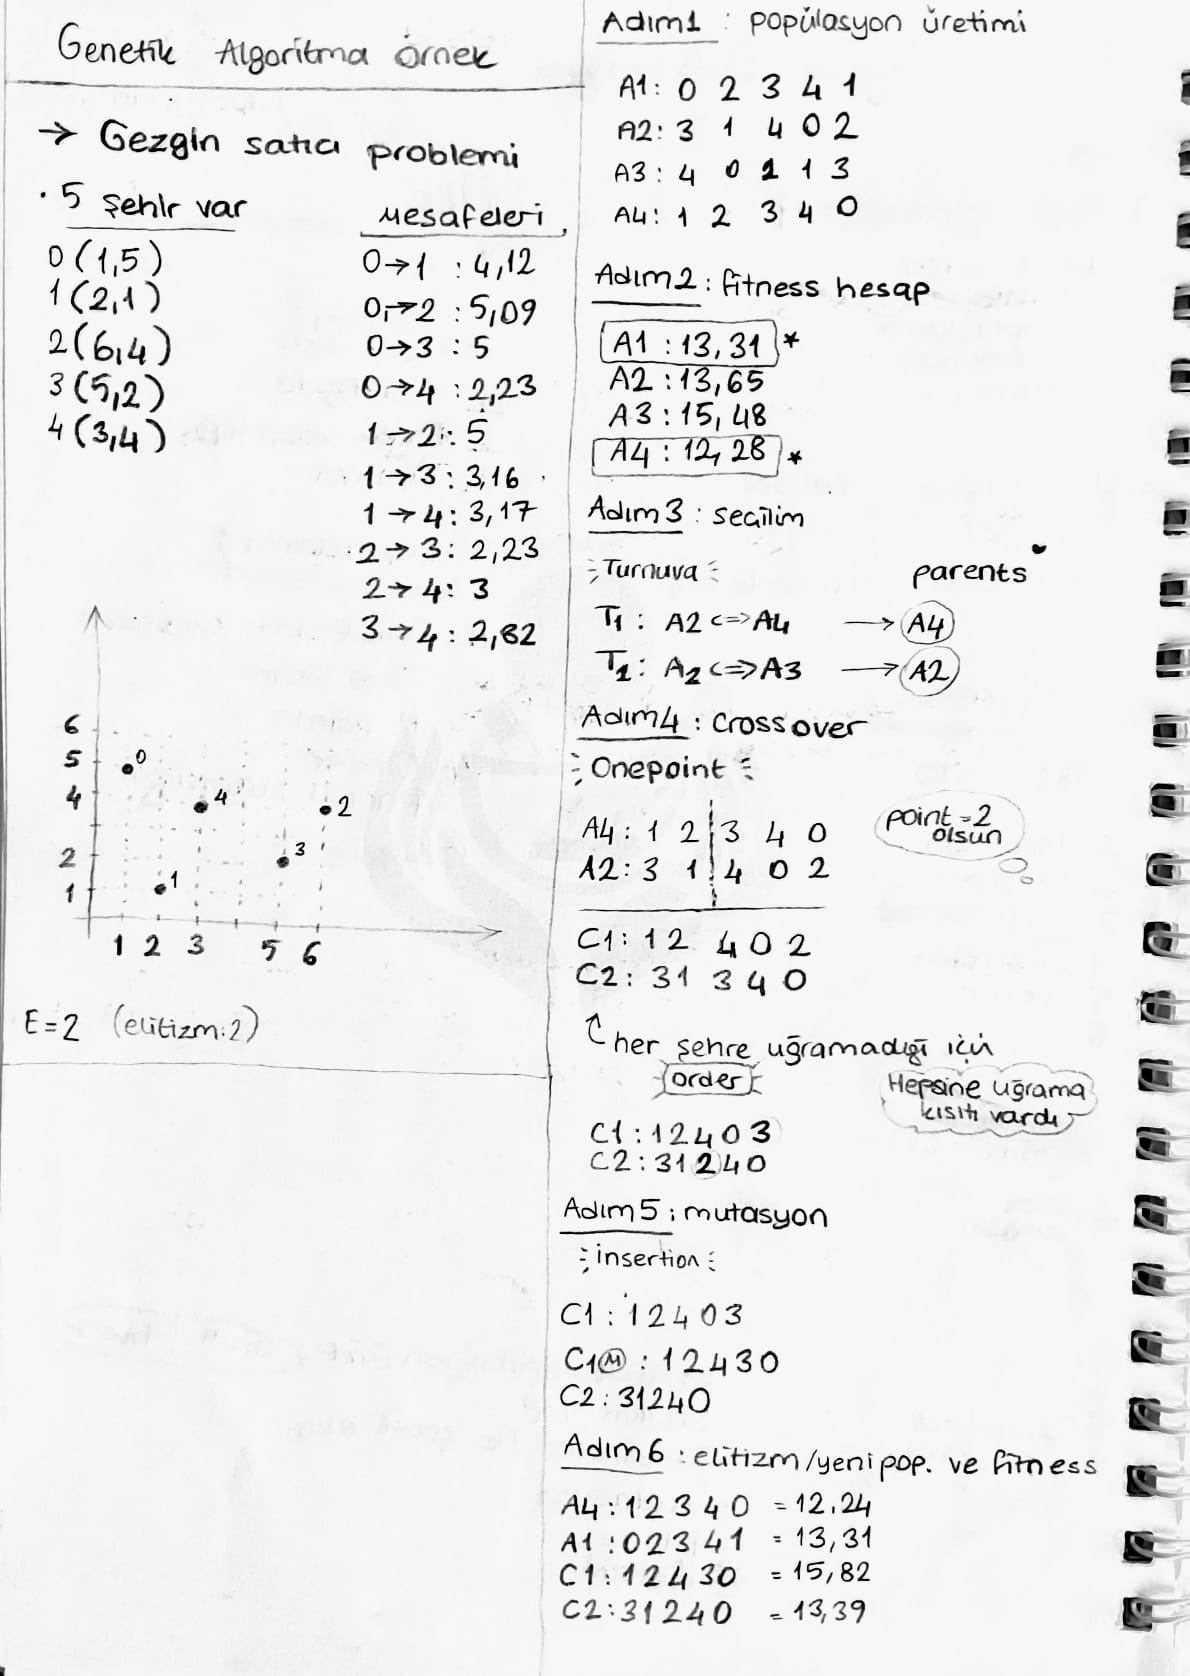 Genetik Algoritma örnek
→ Gezgin satıcı problemi
· 5 şehir var
0 (1,5)
1 (2,1)
2 (6,4)
3 (5,2)
4 (3,4)
Mesafeleri
0→1 : 4,12
0→2 : 5,09
0→3 : 5
0→4 : 2,23
1→2 : 5
1→3 : 3,16
1→4 : 3,17
2→3 : 2,23
2→4 : 3
3→4 : 2,82
6
5
4
2
1
0
4
2
3
1
1 2 3 5 6
E=2 (elitizm:2)
Adım1 : popülasyon üretimi
A1: 0 2 3 4 1
A2: 3 1 4 0 2
A3: 4 0 2 1 3
A4: 1 2 3 4 0
Adım2 : fitness hesap
A1 : 13,31 *
A2 : 13,65
A3 : 15,48
A4 : 12,28 *
Adım3 : seçilim
Turnuva
parents
T1 : A2 <=> A4 → A4
T2 : A2 <=> A3 → A2
Adım4 : Crossover
Onepoint
A4 : 1 2 3 4 0
A2 : 3 1 4 0 2
point=2
olsun
C1 : 1 2 4 0 2
C2 : 3 1 3 4 0
her şehre uğramadığı için
order
Hepsine uğrama
kısıtı vardı
C1 : 1 2 4 0 3
C2 : 3 1 2 4 0
Adım5 : mutasyon
insertion
C1 : 1 2 4 0 3
C1 M : 1 2 4 3 0
C2 : 3 1 2 4 0
Adım6 : elitizm/yeni pop. ve fitness
A4 : 1 2 3 4 0 = 12.24
A1 : 0 2 3 4 1 = 13,31
C1 : 1 2 4 3 0 = 15,82
C2 : 3 1 2 4 0 = 13,39